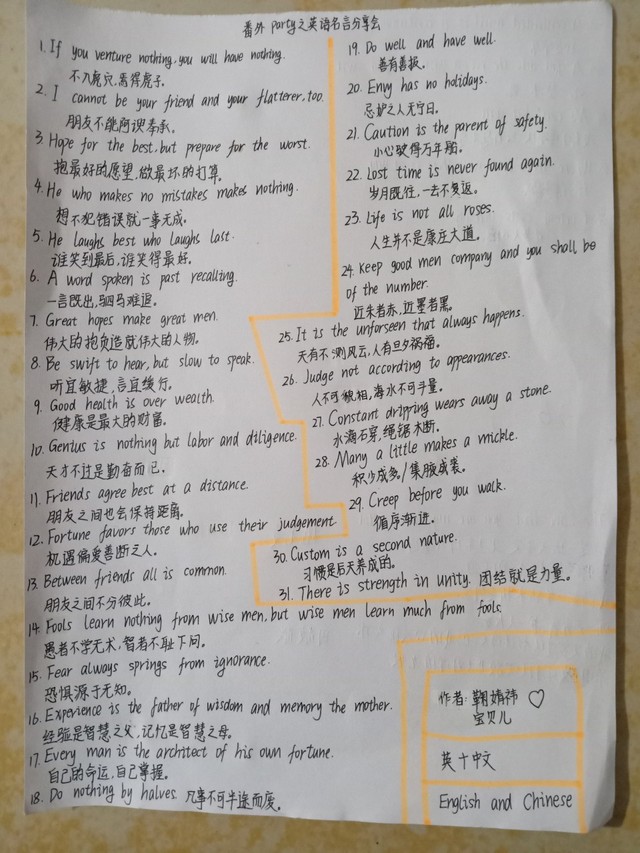 番外 party之英语名言分享会
1. If you venture nothing, you will have nothing.
不入虎穴,焉得虎子。
2. I cannot be your friend and your flatterer, too.
朋友不能阿谀奉承。
3. Hope for the best, but prepare for the worst.
抱最好的愿望,做最坏的打算。
4. He who makes no mistakes makes nothing.
想不犯错误就一事无成。
5. He laughs best who laughs last.
谁笑到最后,谁笑得最好。
6. A word spoken is past recalling.
一言既出,驷马难追。
7. Great hopes make great men.
伟大的抱负造就伟大的人物。
8. Be swift to hear, but slow to speak.
听宜敏捷,言宜缓行。
9. Good health is over wealth.
健康是最大的财富。
10. Genius is nothing but labor and diligence.
天才不过是勤奋而已。
11. Friends agree best at a distance.
朋友之间也会保持距离。
12. Fortune favors those who use their judgement.
机遇偏爱善断之人。
13. Between friends all is common.
朋友之间不分彼此。
14. Fools learn nothing from wise men, but wise men learn much from fools.
愚者不学无术,智者不耻下问。
15. Fear always springs from ignorance.
恐惧源于无知。
16. Experience is the father of wisdom and memory the mother.
经验是智慧之父,记忆是智慧之母。
17. Every man is the architect of his own fortune.
自己的命运,自己掌握。
18. Do nothing by halves. 凡事不可半途而废。
19. Do well and have well.
善有善报。
20. Envy has no holidays.
忌妒之人无宁日。
21. Caution is the parent of safety.
小心驶得万年船。
22. Lost time is never found again.
岁月既往,一去不复返。
23. Life is not all roses.
人生并不是康庄大道。
24. Keep good men company and you shall be
of the number.
近朱者赤,近墨者黑。
25. It is the unforseen that always happens.
天有不测风云,人有旦夕祸福。
26. Judge not according to appearances.
人不可貌相,海水不可斗量。
27. Constant dripping wears away a stone.
水滴石穿,绳锯木断。
28. Many a little makes a mickle.
积少成多/集腋成裘。
29. Creep before you walk.
循序渐进。
30. Custom is a second nature.
习惯是后天养成的。
31. There is strength in unity. 团结就是力量。
作者:鞠婧祎 ♡
宝贝儿
英+中文
English and Chinese